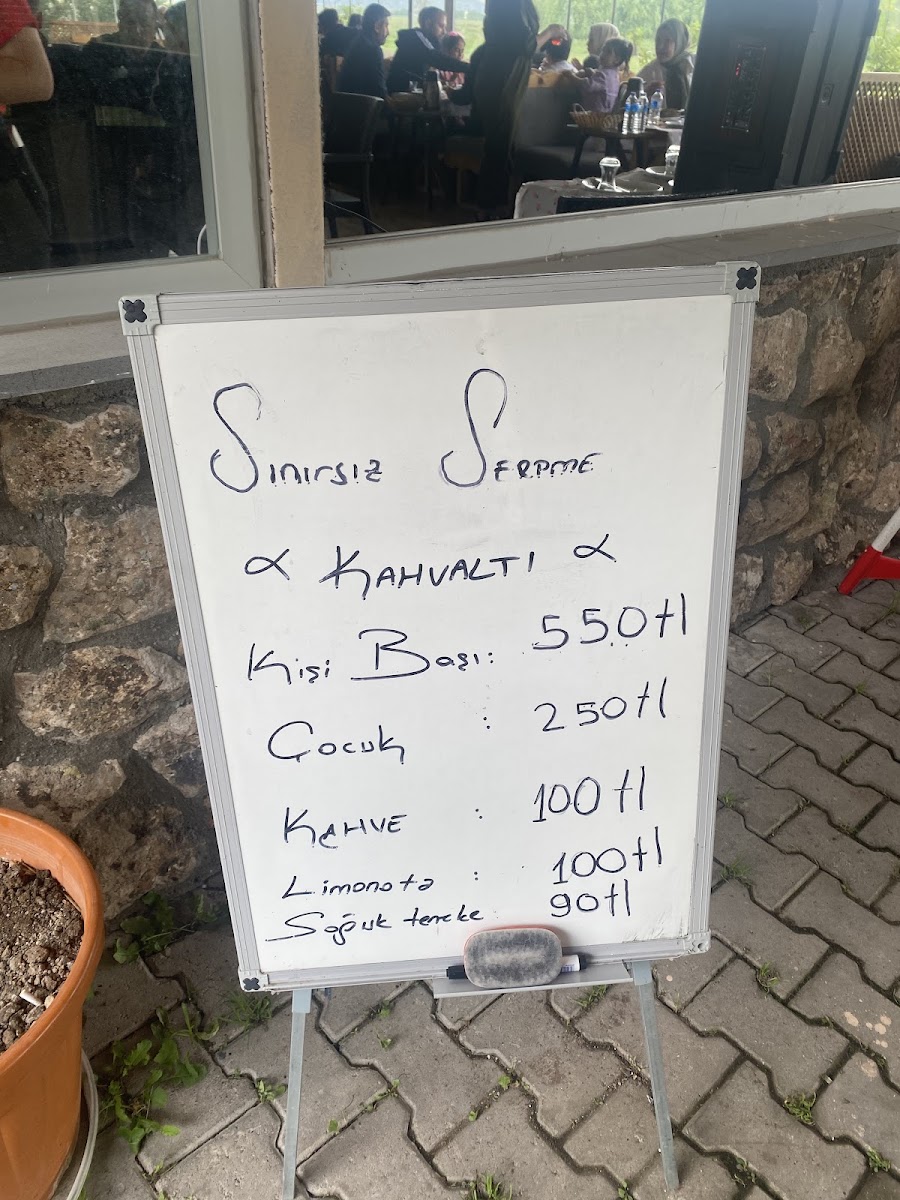 Sınırsız Serpme
∝ KAHVALTI ∝
Kişi Başı: 550 tl
Çocuk : 250 tl
KAHVE : 100 tl
Limonata : 100 tl
Soğuk teneke 90 tl